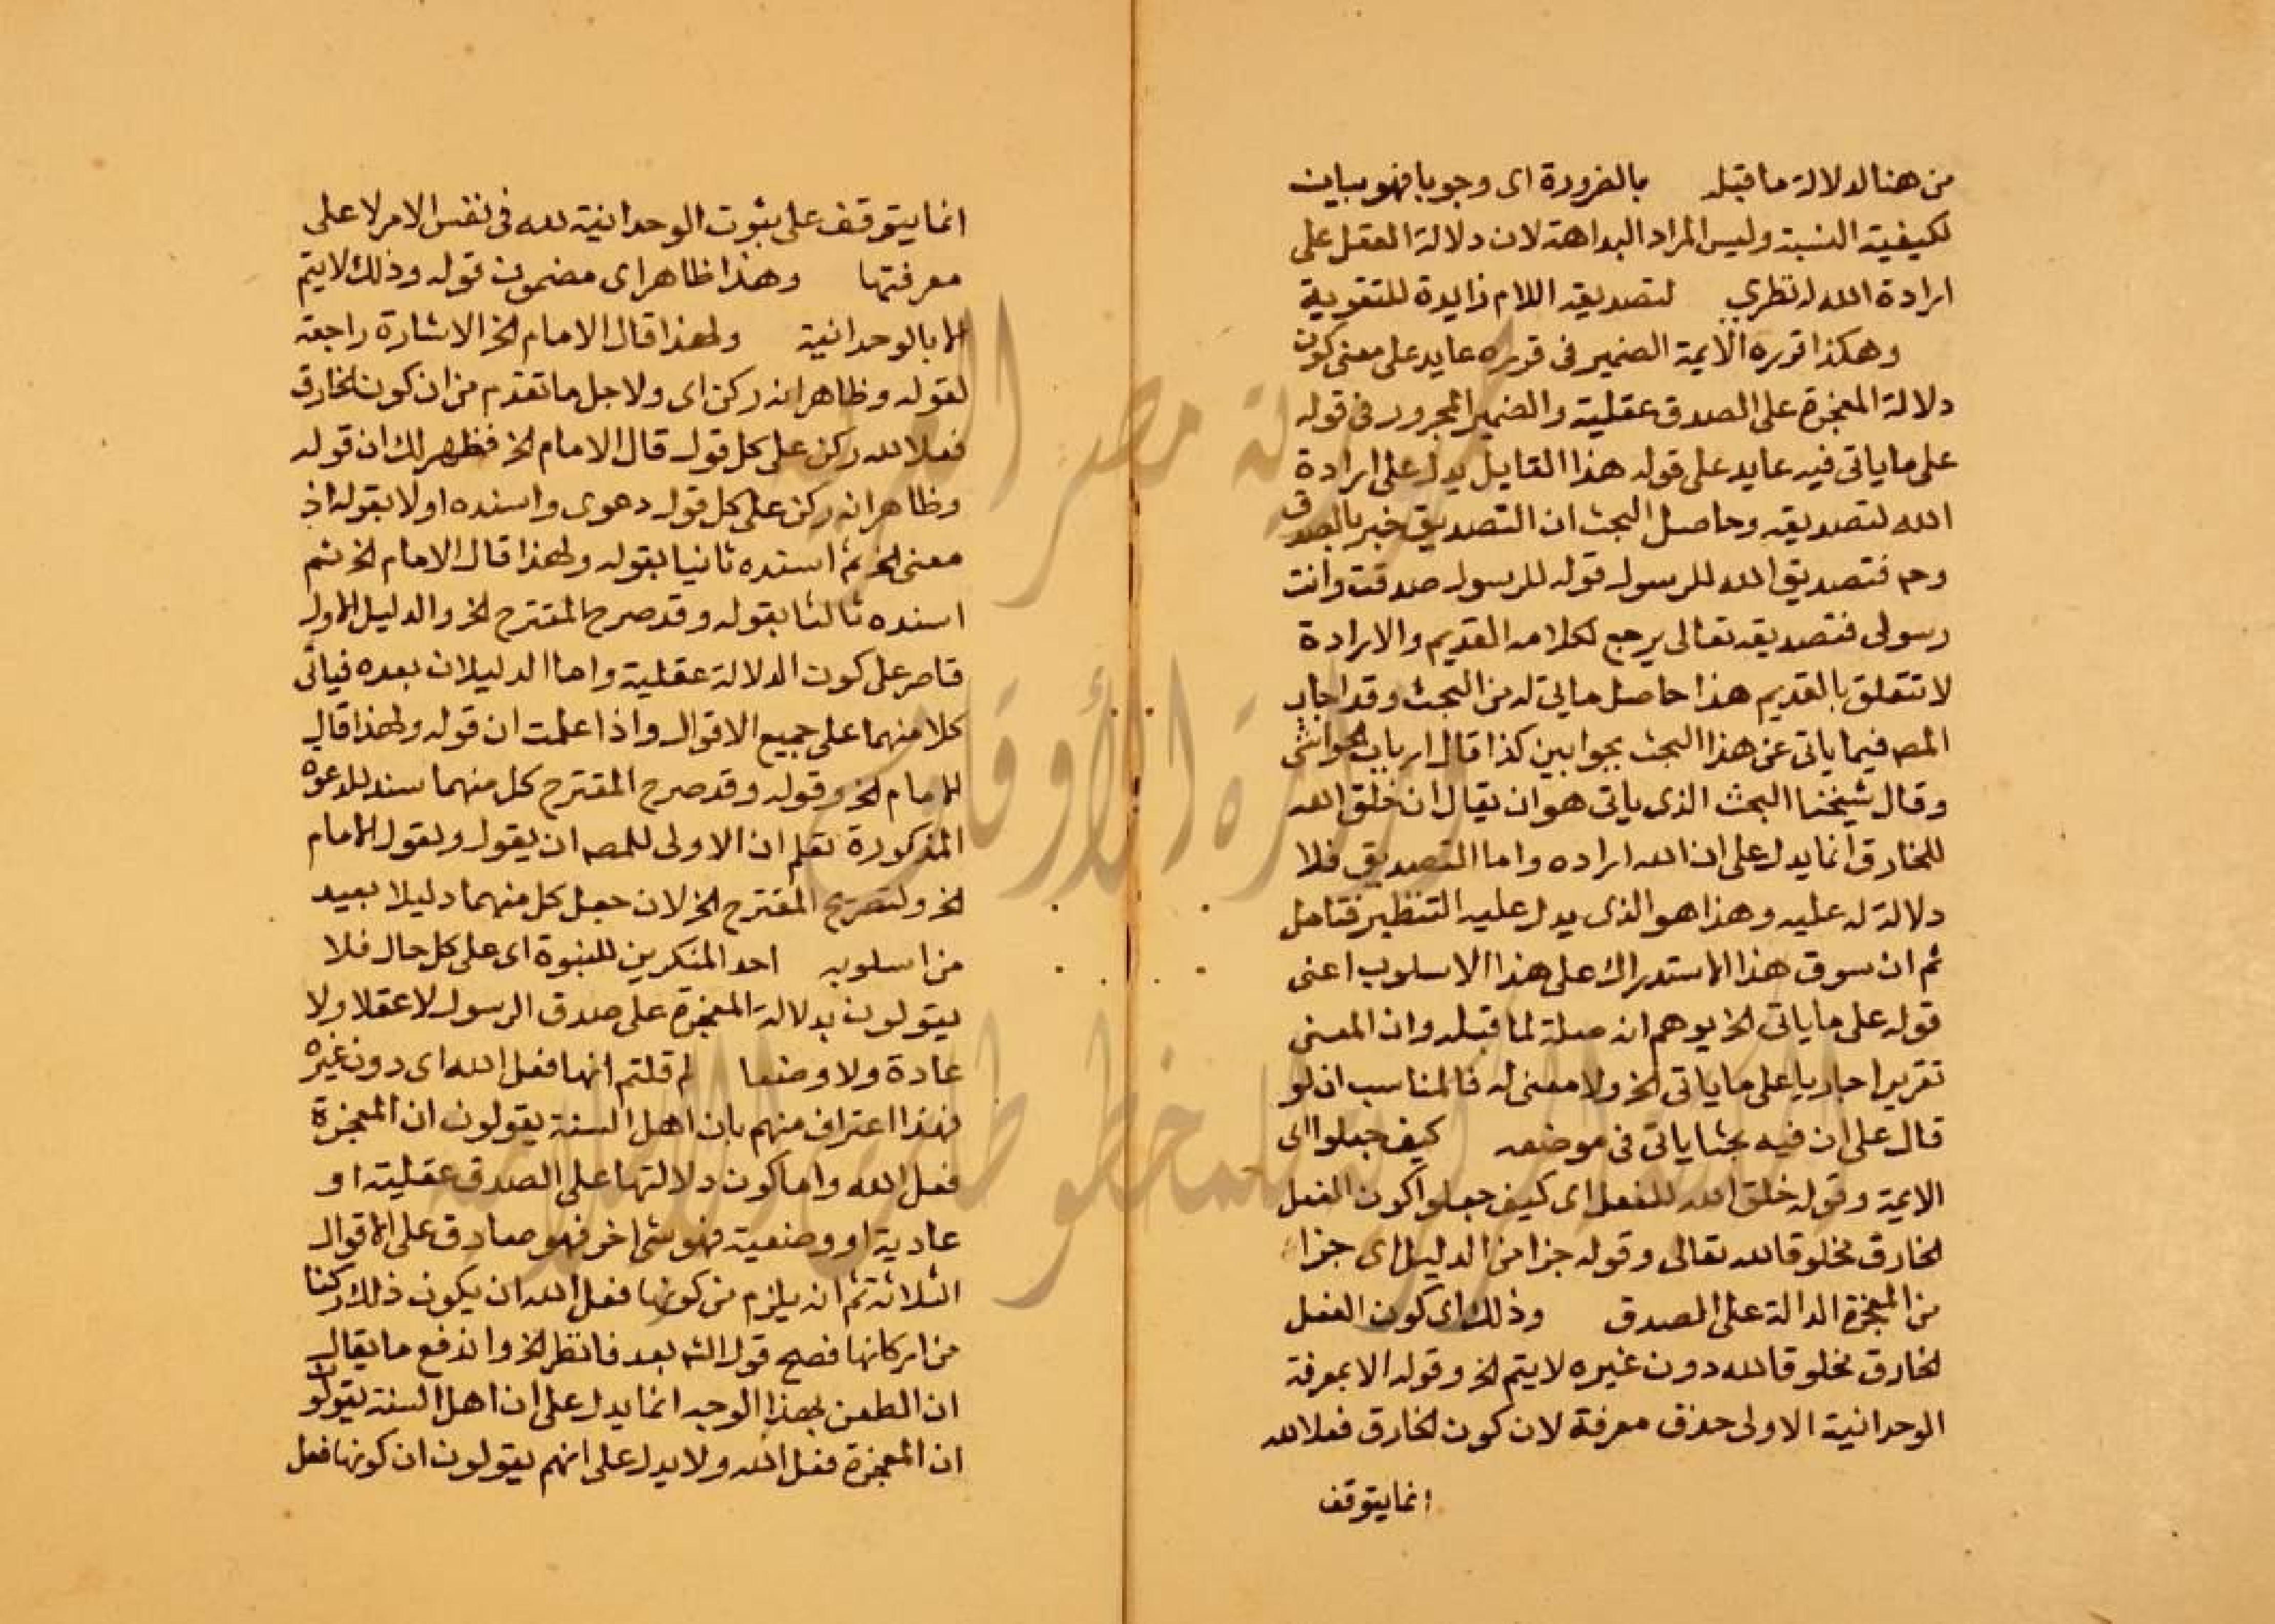 من هنا لدلالة ما قبله بالضرورة اى وجوبا فهو بيان
لكيفية النسبة وليس المراد البداهة لان دلالة العقل على
ارادة الله له نظري لتصديقه اللام زايدة للتقوية
وهكذا قرره الايمة الضمير فى قرره عايد على معنى كون
دلالة المعجزة على الصدق عقلية والضمير المجرور فى قوله
على ما ياتى فيه عايد على قوله هذا القايل يدل على ارادة
الله لتصديقه وحاصل البحث ان التصديق خبر بالصدق
وح فتصديق الله للرسول قوله للرسول صدقت وانت
رسولى فتصديقه تعالى يرجع لكلامه القديم والارادة
لا تتعلق بالقديم هذا حاصل ما ياتى له من البحث وقد اجاب
المص فيما ياتى عن هذا البحث بجوابين كذا قال ارباب الحواشى
وقال شيخنا البحث الذى ياتى هو ان يقال ان خلق الله
للخارق انما يدل على ان الله اراده واما التصديق فلا
دلالة له عليه وهذا هو الذى يدل عليه التنظير فتامل
ثم ان سوق هذا الاستدراك على هذا الاسلوب اعنى
قوله على ما ياتى الخ يوهم انه صلة لما قبله وان المعنى
تقريرا جاريا على ما ياتى الخ ولا معنى له فالمناسب ان لو
قال على ان فيه بحثا ياتى فى موضعه كيف جعلوا اى
الايمة وقوله خلق الله للفعل اى كيف جعلوا كون الفعل
الخارق مخلوقا لله تعالى وقوله جزا من الدليل اى جزا
من المعجزة الدالة على الصدق وذلك اى كون الفعل
الخارق مخلوقا لله دون غيره لا يتم الخ وقوله الا بمعرفة
الوحدانية الاولى حذف معرفة لان كون الخارق فعلا لله
انما يتوقف
انما يتوقف على ثبوت الوحدانية لله فى نفس الامر لا على
معرفتها وهذا ظاهر اى مضمون قوله وذلك لا يتم
الا بالوحدانية ولهذا قال الامام الخ الاشارة راجعة
لقوله وظاهر انه ركن اى ولاجل ما تقدم من ان كون الخارق
فعلا لله ركن على كل قول قال الامام الخ فظهر لك ان قوله
وظاهر انه ركن على كل قول دعوى واسنده اولا بقوله اذ
معنى الخ ثم اسنده ثانيا بقوله ولهذا قال الامام الخ ثم
اسنده ثالثا بقوله وقد صرح المقترح الخ والدليل الاول
قاصر على كون الدلالة عقلية واما الدليلان بعده فياتى
كلا منهما على جميع الاقوال واذا علمت ان قوله ولهذا قال
الامام الخ وقوله وقد صرح المقترح كل منهما سند للدعوة
المذكورة تعلم ان الاولى للمص ان يقول ولقول الامام
الخ ولتصريح المقترح الخ لان جعل كل منهما دليلا بعيد
من اسلوبه احد المنكرين للنبوة اى على كل حال فلا
يقولون بدلالة المعجزة على صدق الرسول لا عقلا ولا
عادة ولا وضعا لم قلتم انها فعل الله اى دون غيره
فهذا اعتراف منهم بان اهل السنة يقولون ان المعجزة
فعل الله واما كون دلالتها على الصدق عقلية او
عادية او وضعية فهو شى اخر فهو صادق على الاقوال
الثلاثة ثم انه يلزم من كونها فعل الله ان يكون ذلك ركنا
من اركانها فصح قول الش بعد فانظر الخ واندفع ما يقال
ان الطعن بهذا الوجه انما يدل على ان اهل السنة يقولون
ان المعجزة فعل الله ولا يدل على انهم يقولون ان كونها فعل